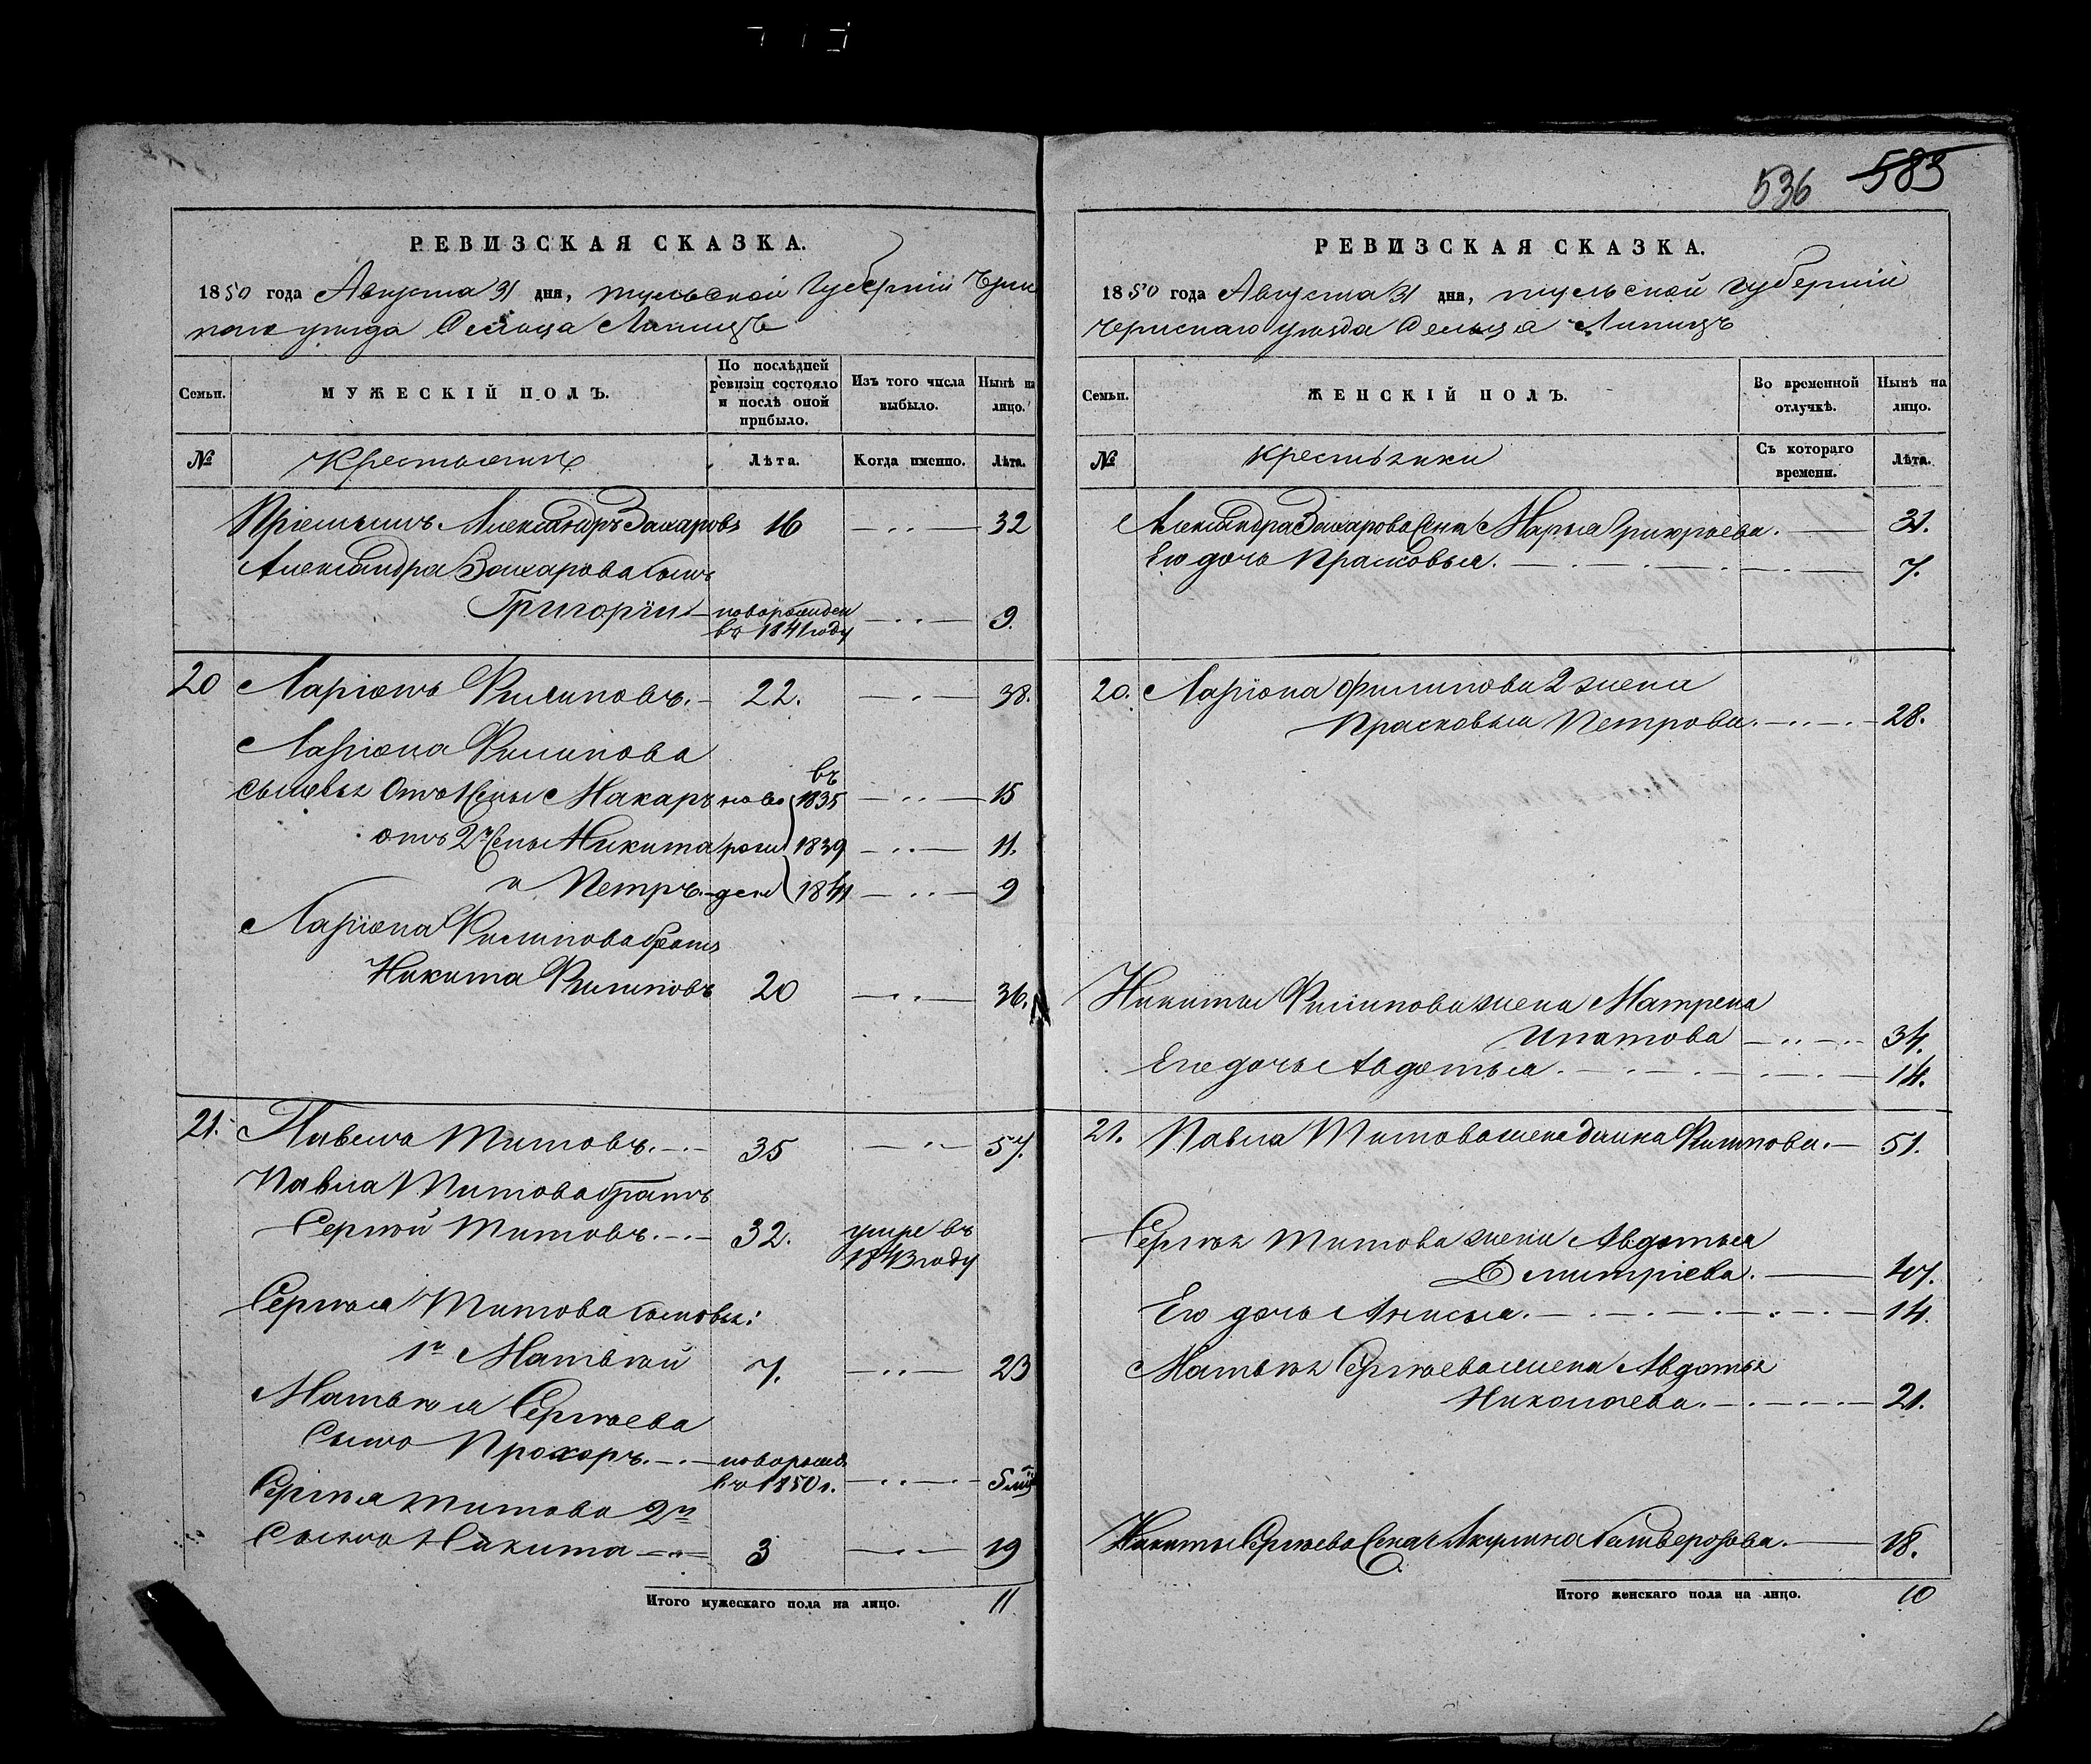 536 583
РЕВИЗСКАЯ СКАЗКА.
1850 года Августа 31 дня, тульской Губерніи Черн
скаго уѣзда Сельца Липицъ
Семьи.
МУЖЕСКІЙ ПОЛЪ.
По послѣдней ревизіи состояло и послѣ оной прибыло.
Изъ того числа выбыло.
Нынѣ на лицо.
№
Крестьяне
Лѣта.
Когда именно.
Лѣта.
Пріемышъ Александръ Захаровъ 16 32
Александра Захарова сынъ
Григорій новорожден
въ 1841 году 9.
20 Ларіонъ Филиповъ. 22. 38.
Ларіона Филипова
въ
сыновья отъ 1 жены Макаръ ново 1835 15
отъ 2й жены Никита рож 1839 11.
и Петръ. ден 1841 9
Ларіона Филипова братъ
Никита Филиповъ 20 36.
21. Павелъ Титовъ. 35 57.
Павла Титова братъ
Сергѣй Титовъ. 32. умре въ
1843 году
Сергѣя Титова сыновья:
1й Матвѣй 7. 23
Матвѣя Сергѣева
Сынъ Прохоръ. новорожд.
въ 1850 г. 5 мѣ
Сергѣя Титова 2й
Сынъ Никита 3 19
Итого мужескаго пола на лицо. 11
РЕВИЗСКАЯ СКАЗКА.
1850 года Августа 31 дня, тульской губерніи
Чернскаго уѣзда Сельца Липицъ
Семьи.
ЖЕНСКІЙ ПОЛЪ.
Во временной отлучкѣ.
Нынѣ на лицо.
№
Крестьянки
Съ котораго времени.
Лѣта.
Александра Захарова жена Марья Григорьева. 31.
Его дочь Прасковья. 7.
20. Ларіона Филипова 2 жена
Прасковья Петрова. 28.
Никиты Филипова жена Матрена
Ипатова 34.
Его дочь Авдотья. 14.
21. Павла Титова жена Филипова. 51.
Сергѣя Титова жена Авдотья
Дмитріева. 47.
Его дочь Анисья. 14.
Матвѣя Сергѣева жена Авдотья
Николаева. 21.
Никиты Сергѣева жена Акулина 18.
Итого женскаго пола на лицо. 10